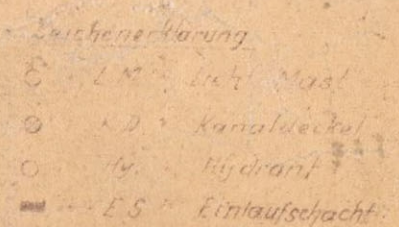 Zeichenerklärung
L.M = Licht Mast
K.D = Kanaldeckel
Hy. = Hydrant
E S = Einlaufschacht